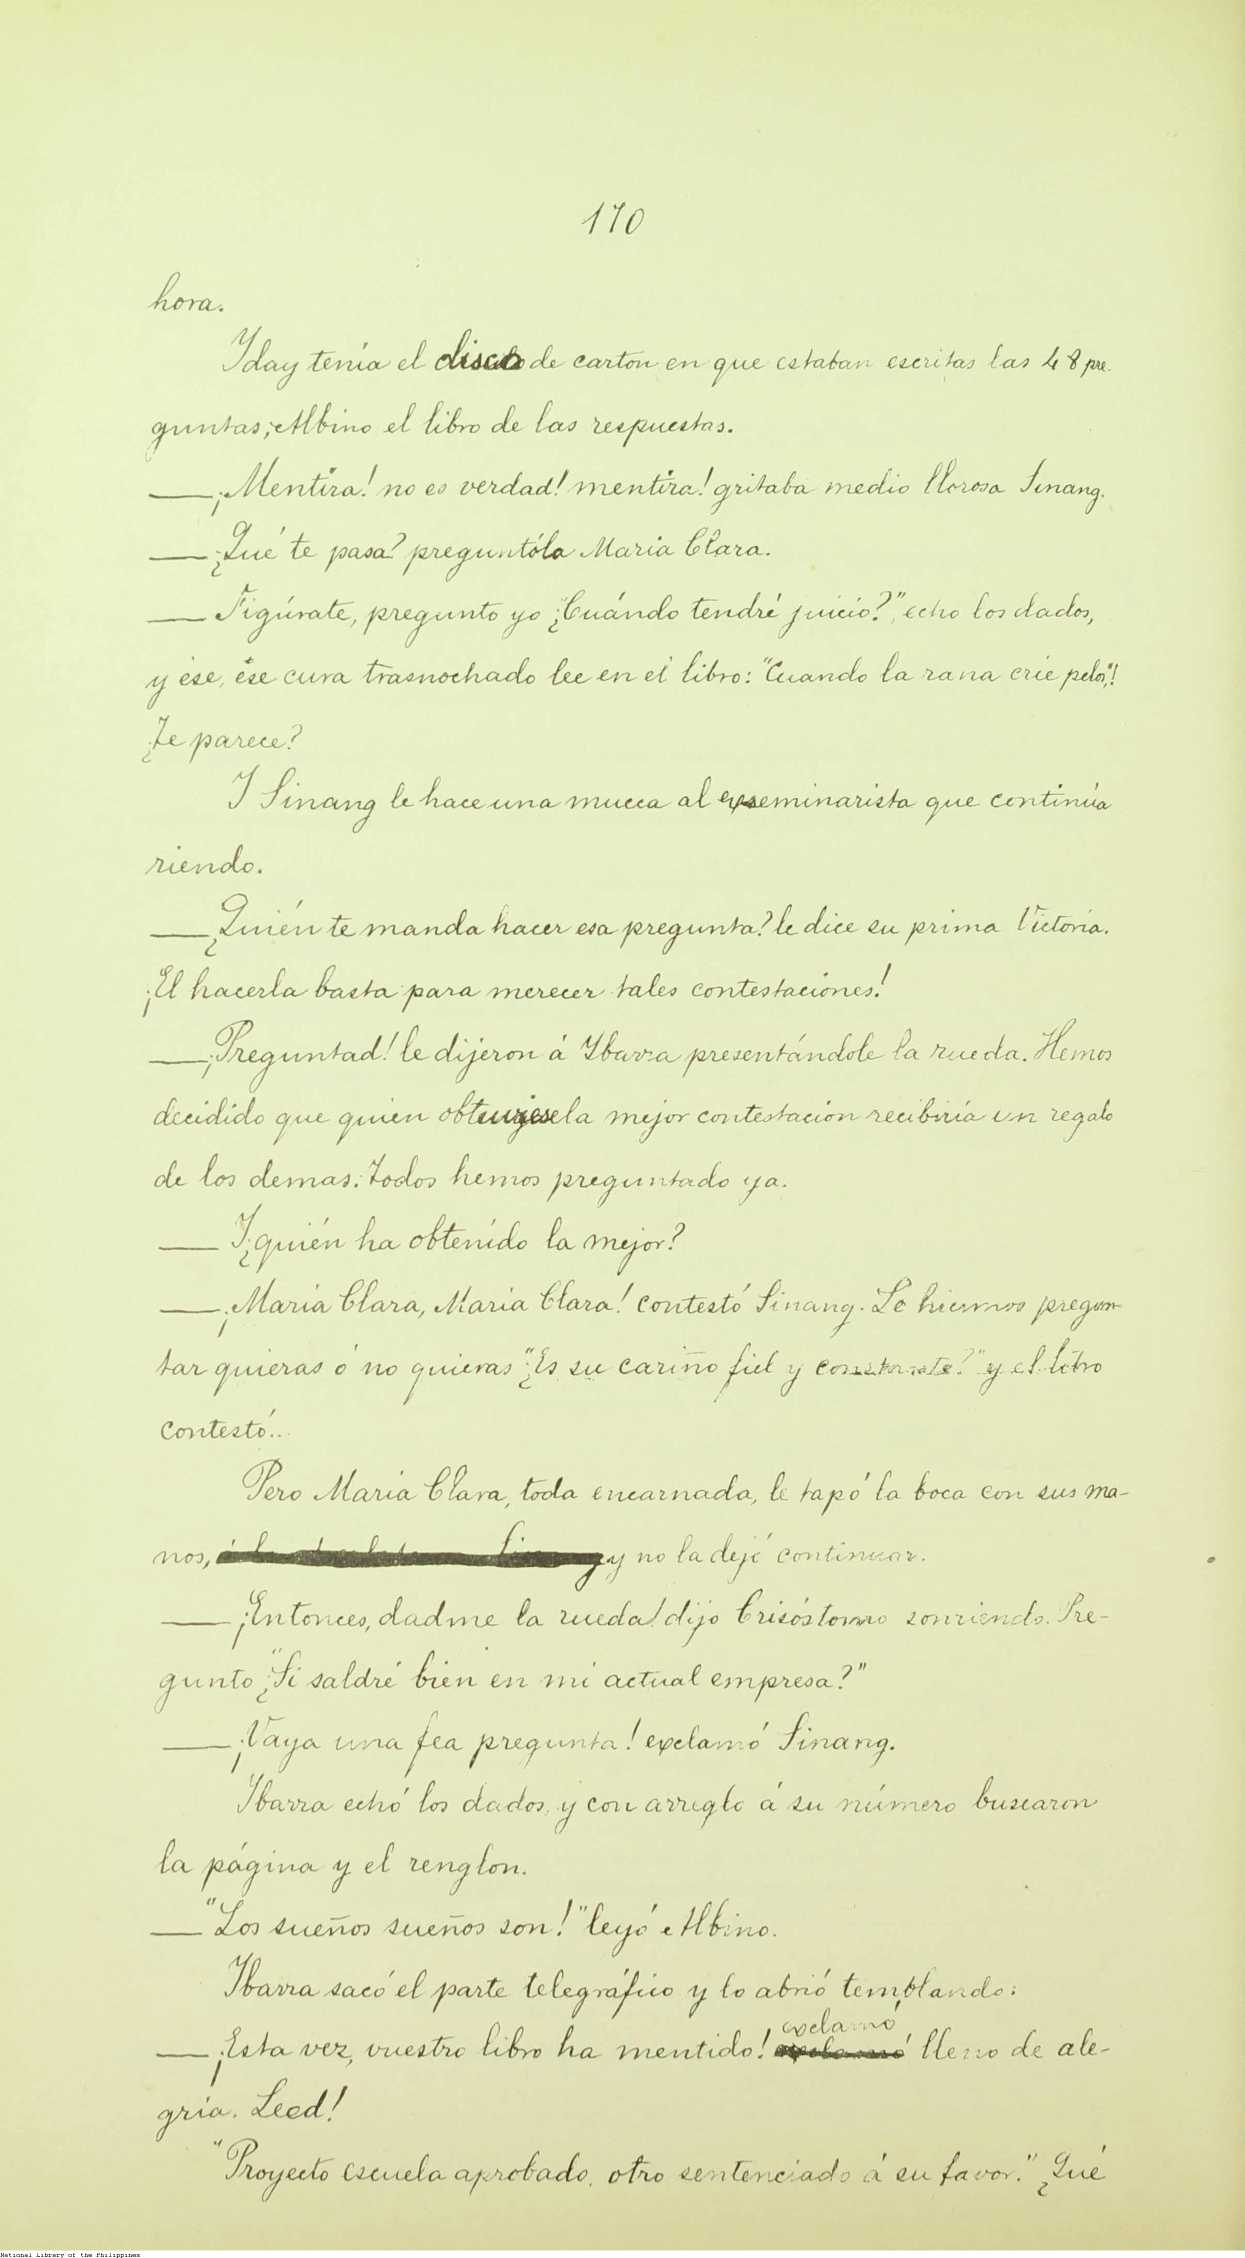 170
hora.
Yday tenía el disco de carton en que estaban escritas las 48 pre-
guntas; Albino el libro de las respuestas.
— ¡Mentira! no es verdad! mentira! gritaba medio llorosa Sinang.
— ¿Qué te pasa? preguntóla Maria Clara.
— Figúrate, pregunto yo "¿Cuándo tendré juicio?", echo los dados,
y ése, ése cura trasnochado lee en el libro: "Cuando la rana crie pelos"!
¿Te parece?
Y Sinang le hace una mueca al exseminarista que continúa
riendo.
— ¿Quién te manda hacer esa pregunta? le dice su prima Victoria.
¡El hacerla basta para merecer tales contestaciones!
— ¡Preguntad! le dijeron á Ybarra presentándole la rueda. Hemos
decidido que quien obtuviese la mejor contestación recibiría un regalo
de los demas. Todos hemos preguntado ya.
— Y ¿quién ha obtenido la mejor?
— ¡Maria Clara, Maria Clara! contestó Sinang. Le hicimos pregun-
tar quieras ó no quieras "¿Es su cariño fiel y constante?" y el libro
contestó..
Pero Maria Clara, toda encarnada, le tapó la boca con sus ma-
nos, y no la dejó continuar.
— ¡Entonces, dadme la rueda! dijo Crisóstomo sonriendo. Pre-
gunto "¿Si saldré bien en mi actual empresa?"
— ¡Vaya una fea pregunta! exclamó Sinang.
Ybarra echó los dados, y con arreglo á su número buscaron
la página y el renglon.
— "Los sueños sueños son!" leyó Albino.
Ybarra sacó el parte telegráfico y lo abrió temblando:
— ¡Esta vez, vuestro libro ha mentido! exclamó lleno de ale-
gria. Leed!
"Proyecto escuela aprobado, otro sentenciado á su favor." ¿Qué
National Library of the Philippines